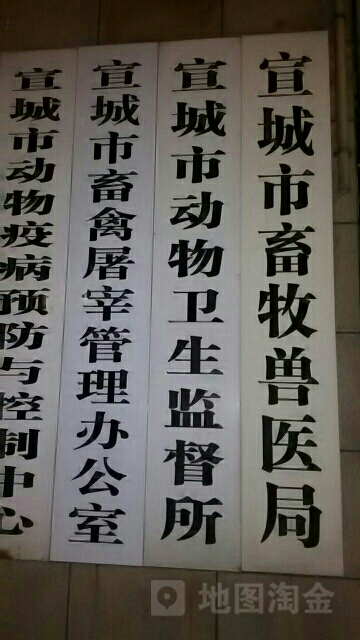 宣城市畜牧兽医局
宣城市动物卫生监督所
宣城市畜禽屠宰管理办公室
宣城市动物疫病预防与控制中心
地图淘金